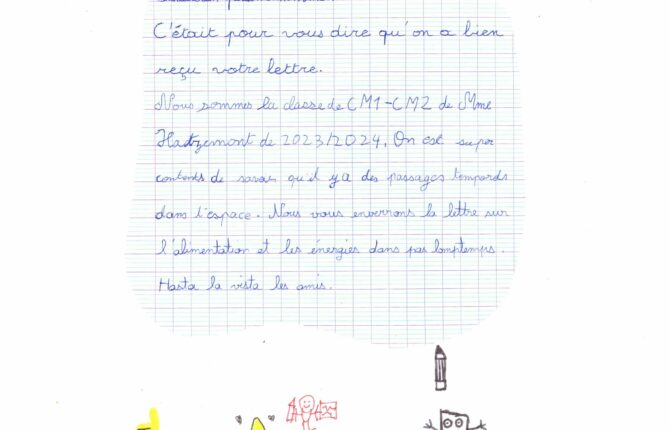 C'était pour vous dire qu'on a bien
reçu votre lettre.
Nous sommes la classe de CM1-CM2 de Mme
de 2023/2024. On est super
contents de savoir qu'il y a des passages
dans l'espace. Nous vous enverrons la lettre sur
l'alimentation et les énergies dans pas lomptemps.
Hasta la vista les amis.